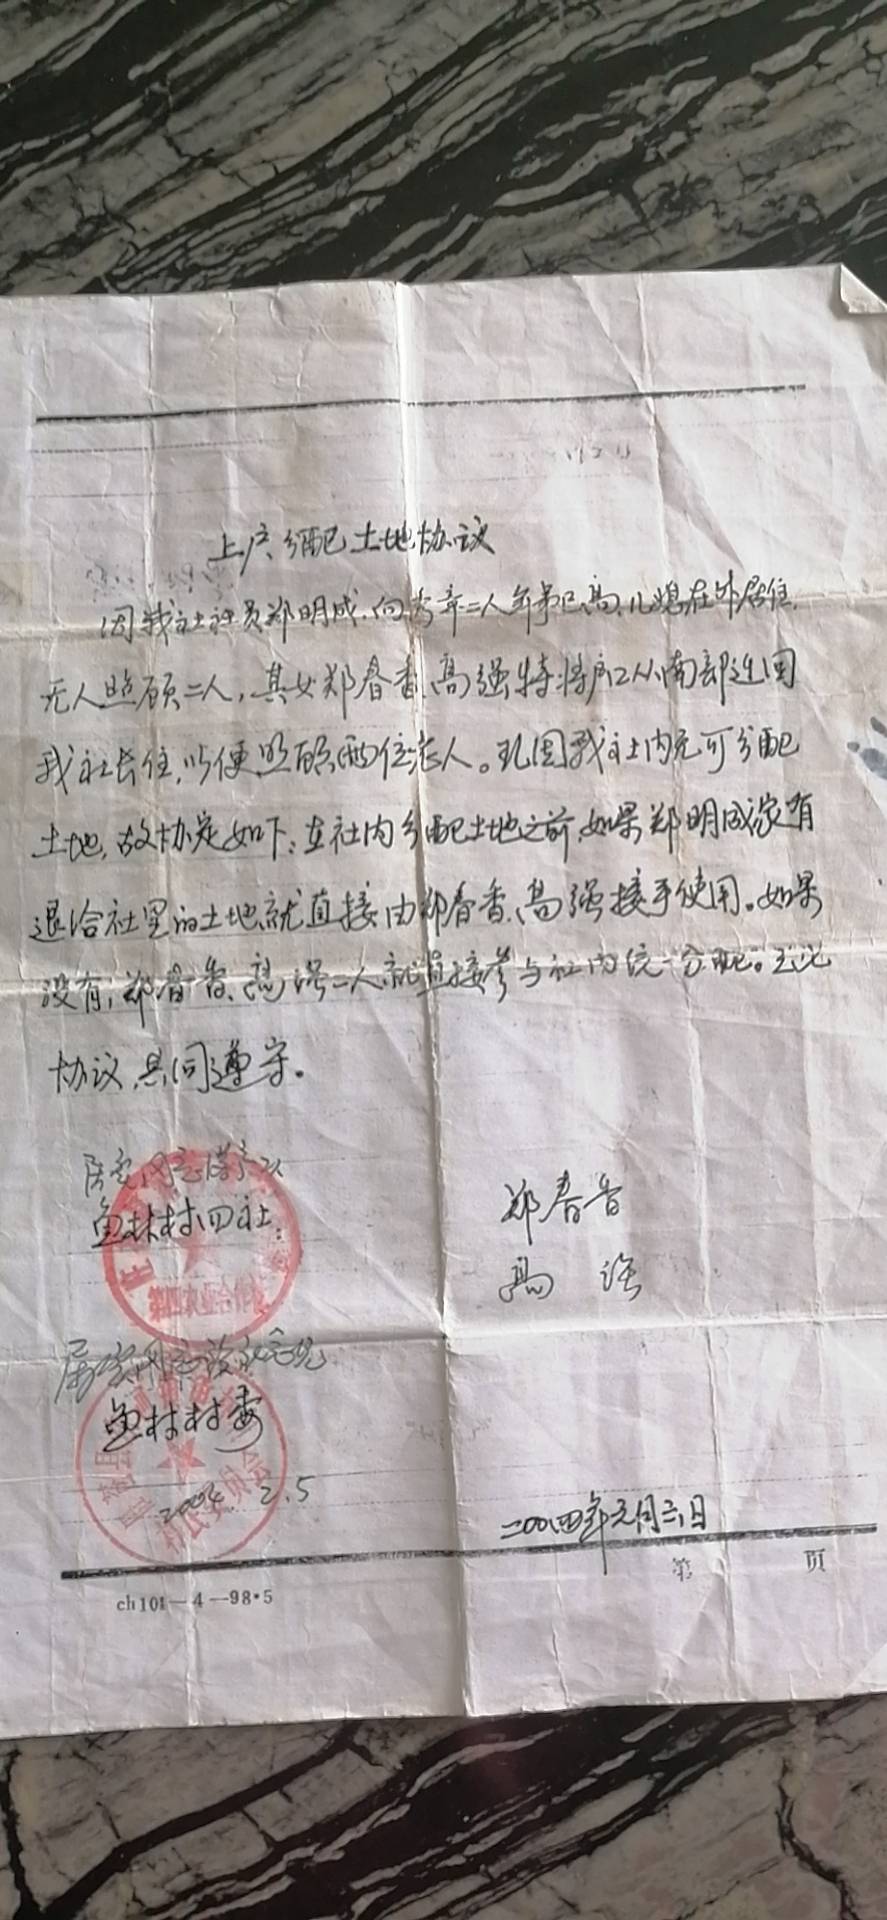 上户分配土地协议
因我社社员郑明成、向秀章二人年事已高,儿媳在外居住,
无人照顾二人,其女郑春香、高强特将户口从南部迁回
我社长住,以便照顾两位老人。现因我社内无可分配
土地,故协定如下:在社内分配土地之前,如果郑明成家有
退给社里的土地就直接由郑春香、高强接手使用。如果
没有,郑春香、高强二人就直接参与社内统一分配。
协议,共同遵守。
鱼林村四社:
第四农业合作社
郑春香
高强
属实同意
鱼林村村委
村民委员会
2004. 2.5
二00四年元月六日
第 页
ch101—4—98·5